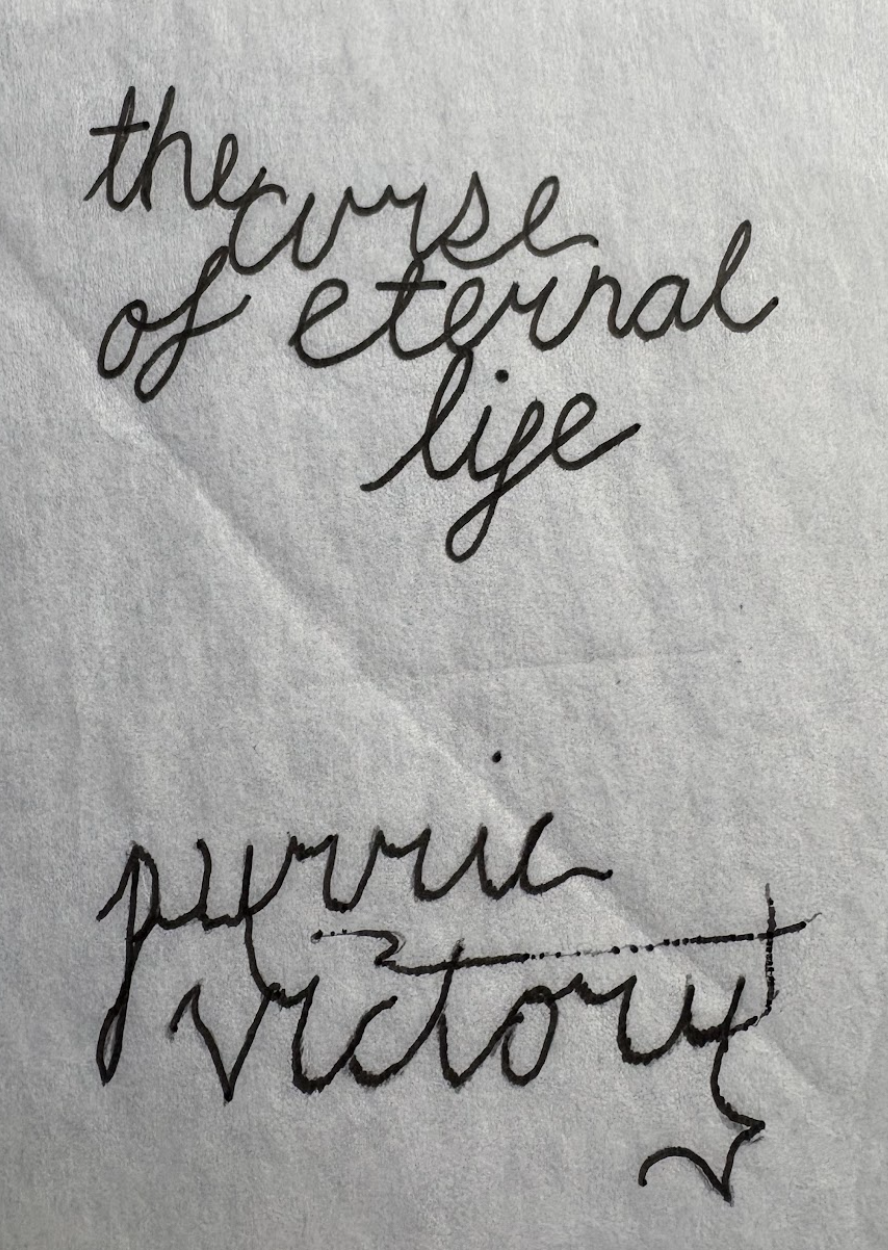 the curse
of eternal
life
pyrric
victory